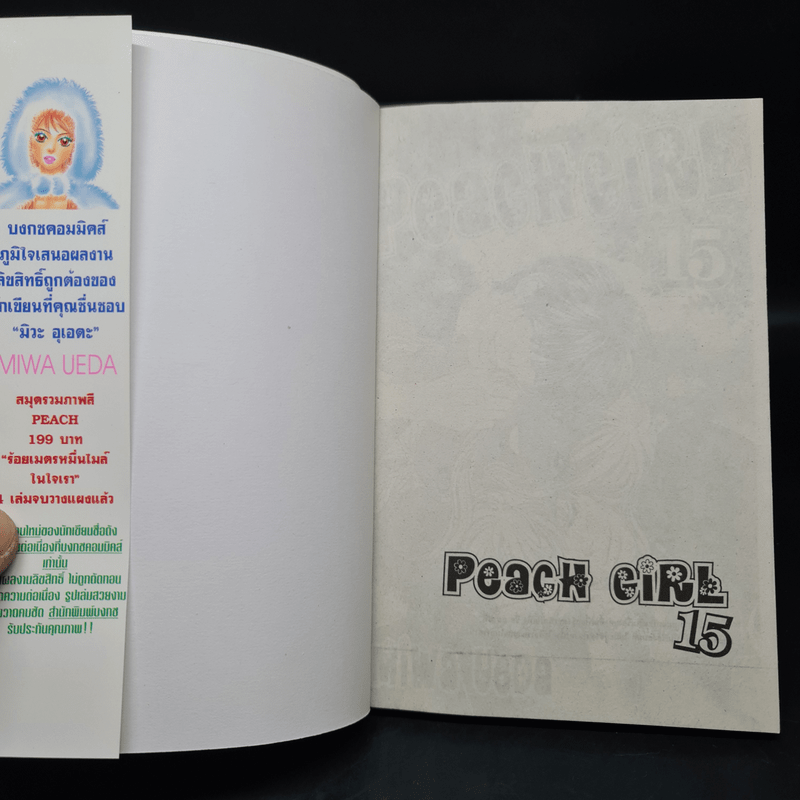 บงกชคอมมิคส์
ภูมิใจเสนอผลงาน
ลิขสิทธิ์ถูกต้องของ
นักเขียนที่คุณชื่นชอบ
"มิวะ อุเอตะ"
MIWA UEDA
สมุดรวมภาพสี
PEACH
199 บาท
"ร้อยเมตรหมื่นไมล์
ในใจเรา"
4 เล่มจบวางแผงแล้ว
ของนักเขียนชื่อดัง
ต่อเนื่องที่บงกชคอมมิคส์
เท่านั้น
ผลงานลิขสิทธิ์ ไม่ถูกตัดทอน
ความต่อเนื่อง รูปเล่มสวยงาม
คมชัด สำนักพิมพ์บงกช
รับประกันคุณภาพ!!
PEACH GIRL
15